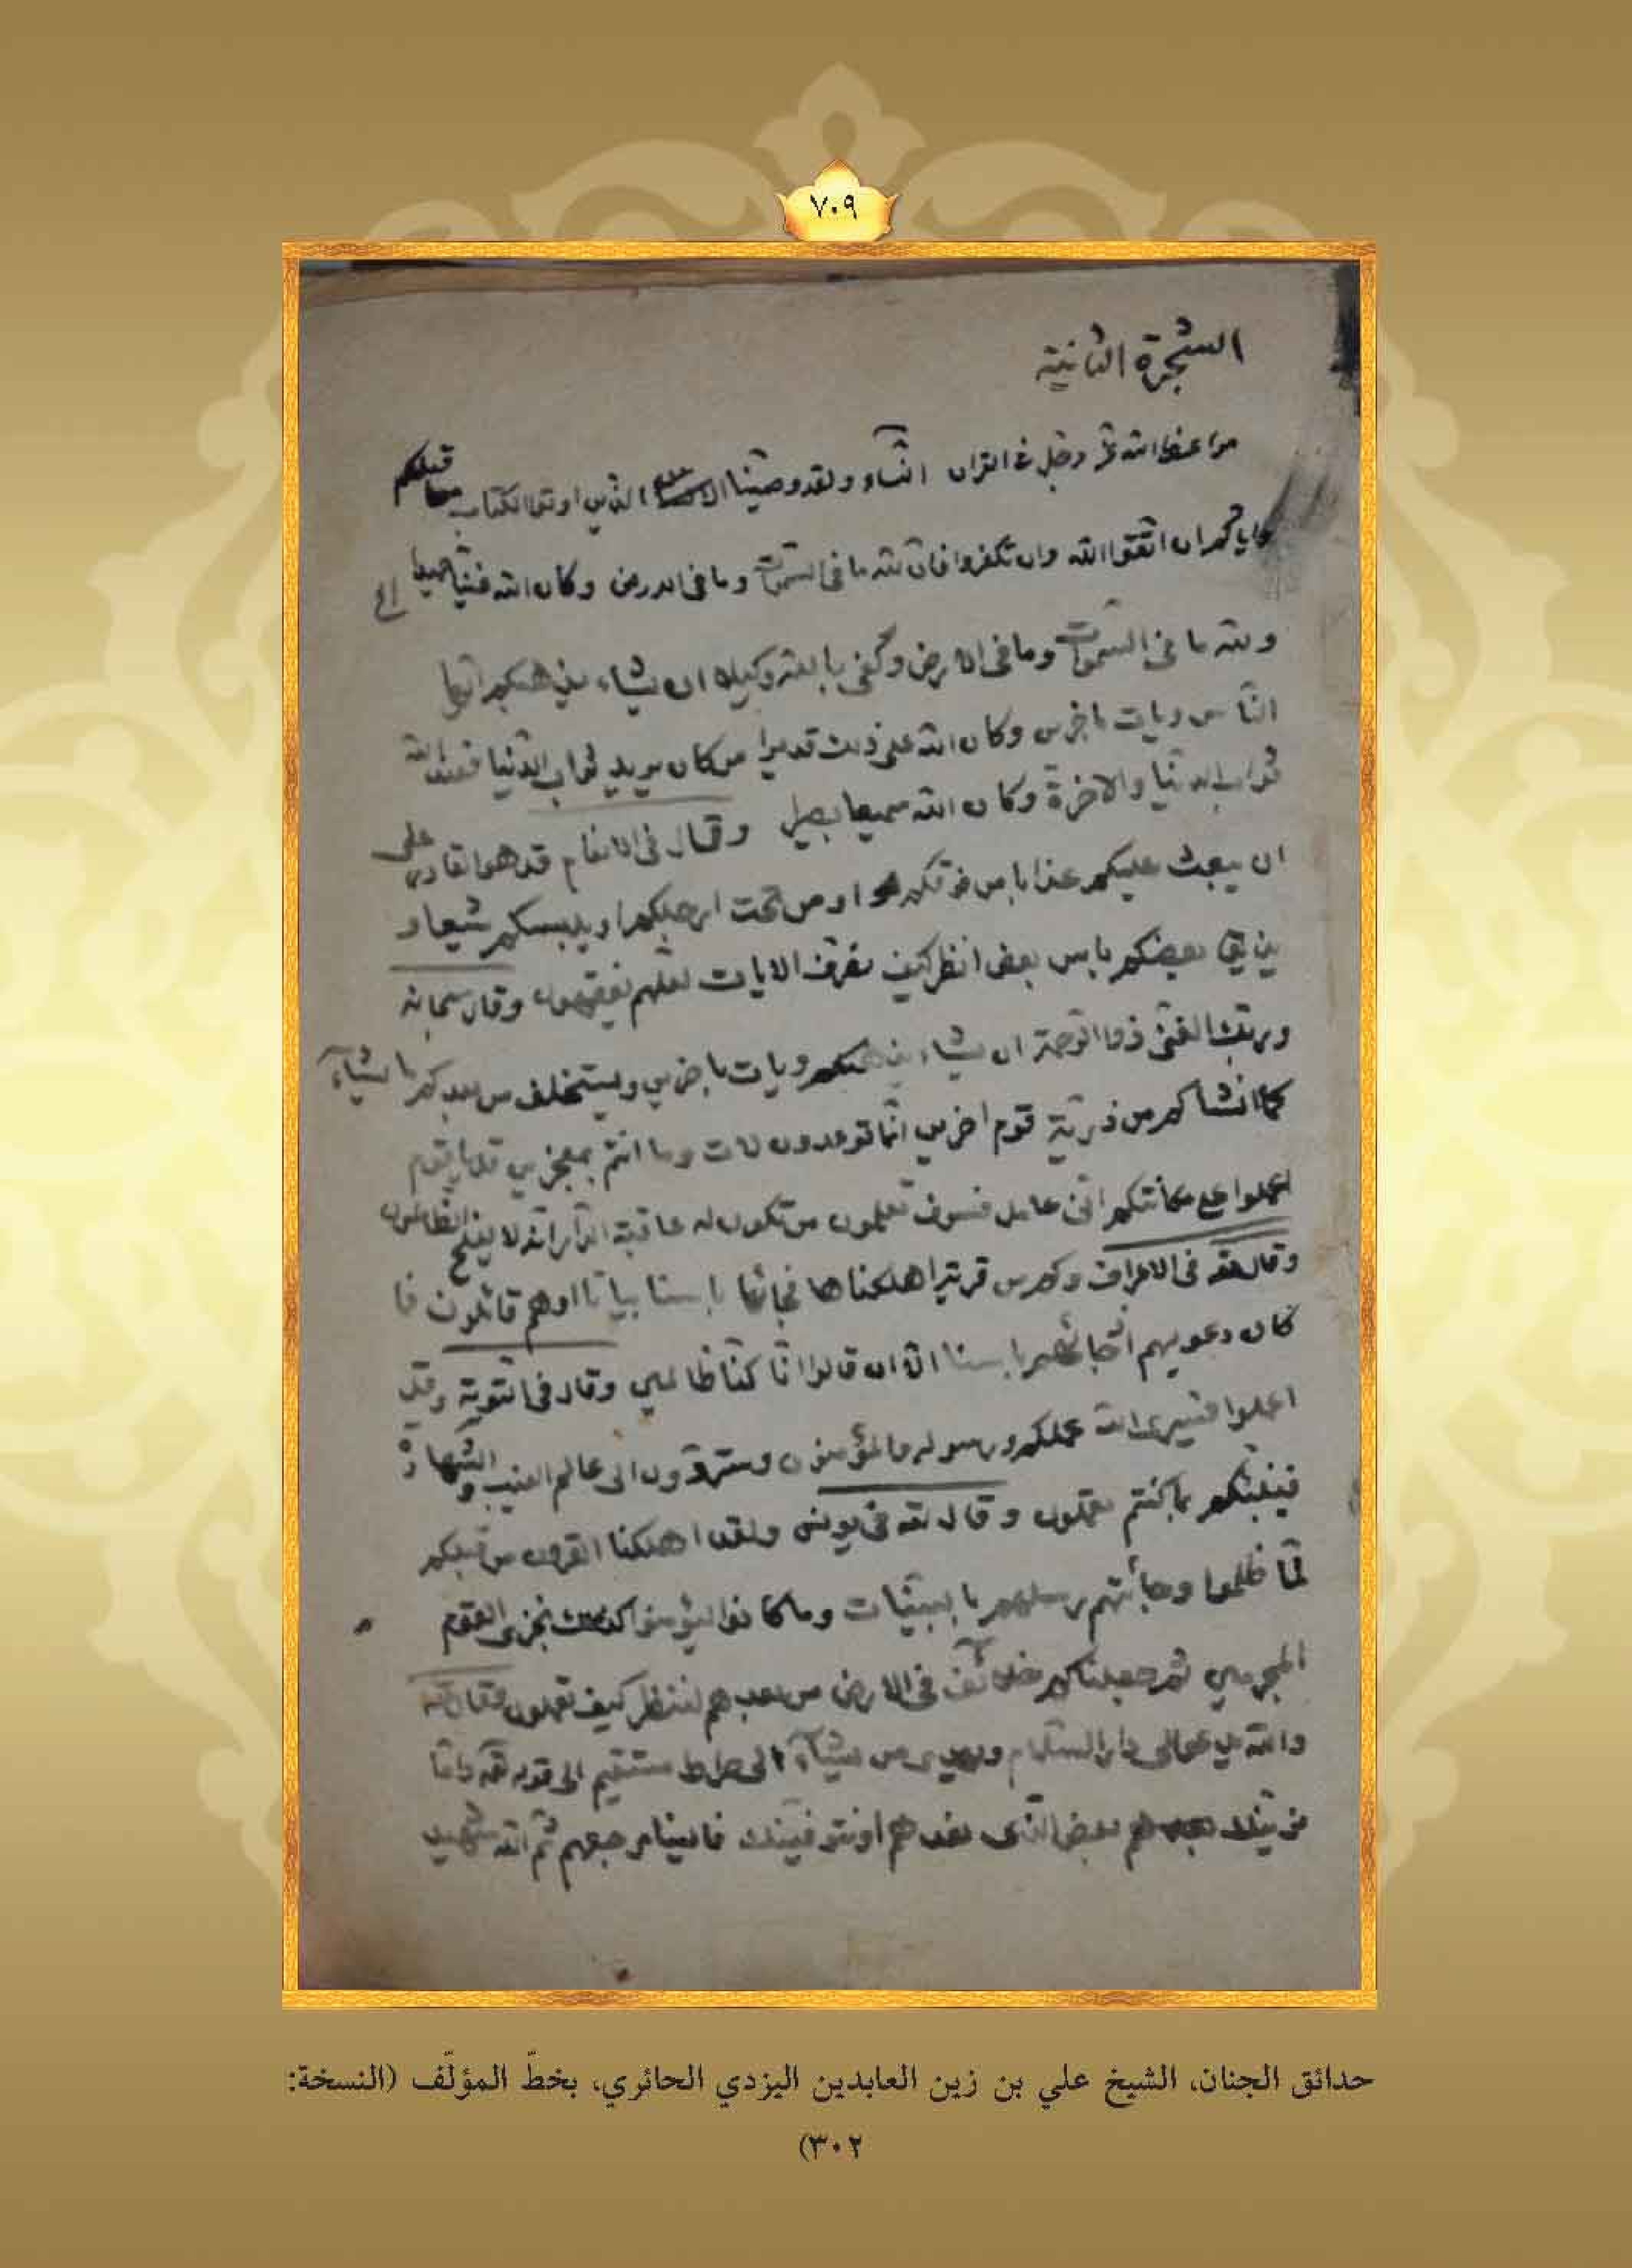 ٧٠٩
الشجرة الثانية
مواعظ الله عز وجل في القران النساء ولقد وصينا الذين اوتوا الكتاب من قبلكم
واياكم ان اتقوا الله وان تكفروا فان لله ما في السموات وما في الارض وكان الله غنيا حميدا
ولله ما في السموات وما في الارض وكفى بالله وكيلا ان يشاء يذهبكم ايها
الناس ويات باخرين وكان الله على ذلك قديرا من كان يريد ثواب الدنيا فعند الله
ثواب الدنيا والاخرة وكان الله سميعا بصيرا وقال في الانعام قل هو القادر على
ان يبعث عليكم عذابا من فوقكم او من تحت ارجلكم او يلبسكم شيعا و
يذيق بعضكم باس بعض انظر كيف نصرف الايات لعلهم يفقهون وقال سبحانه
وربك الغنى ذو الرحمة ان يشاء يذهبكم ويات باخرين ويستخلف من بعدكم ما يشاء
كما انشاكم من ذرية قوم اخرين انما توعدون لات وما انتم بمعجزين قل يا قوم
اعملوا على مكانتكم انى عامل فسوف تعلمون من تكون له عاقبة الدار انه لا يفلح الظالمون
وقال في الاعراف وكم من قرية اهلكناها فجائها باسنا بياتا او هم قائلون فا
كان دعويهم اذ جائهم باسنا الا ان قالوا انا كنا ظالمين وقال في التوبة وقل
اعملوا فسيرى الله عملكم ورسوله والمؤمنون وستردون الى عالم الغيب والشهادة
فينبئكم بما كنتم تعملون وقال في يونس ولقد اهلكنا القرون من قبلكم
لما ظلموا وجائتهم رسلهم بالبينات وما كانوا ليؤمنوا كذلك نجزى القوم
المجرمين ثم جعلناكم خلائف في الارض من بعدهم لننظر كيف تعملون
والله يدعوا الى دار السلام ويهدى من يشاء الى صراط مستقيم الى قوله
نرينك بعض الذى نعدهم او نتوفينك فالينا مرجعهم ثم الله شهيد
حدائق الجنان، الشيخ علي بن زين العابدين اليزدي الحائري، بخطّ المؤلّف (النسخة:
٣٠٢)